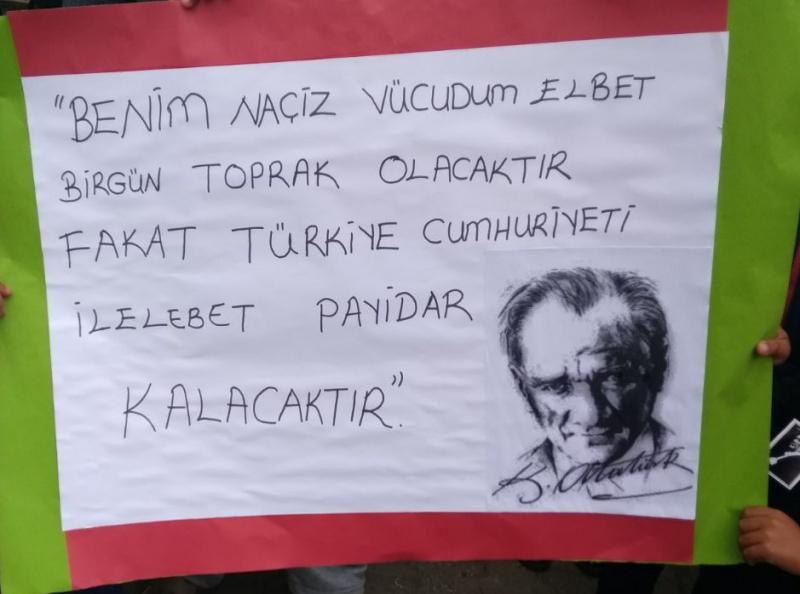 "BENİM NAÇİZ VÜCUDUM ELBET
BİRGÜN TOPRAK OLACAKTIR
FAKAT TÜRKİYE CUMHURİYETİ
İLELEBET PAYİDAR
KALACAKTIR".
K. Atatürk